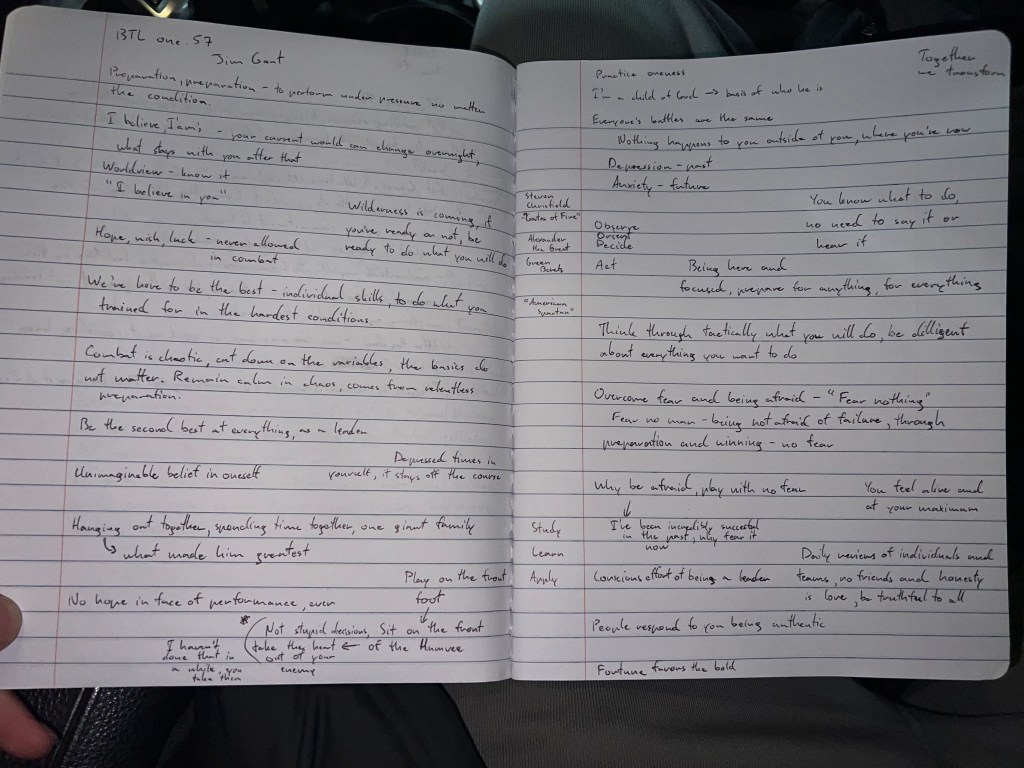 BTL one. 57
Jim Gant
Preparation, preparation - to perform under pressure no matter
the condition.
I believe, I am's - your current world can change overnight,
what stays with you after that
Worldview - know it
"I believe in you"
Wilderness is coming, if
you're ready or not, be
ready to do what you will do
Hope, wish, luck - never allowed
in combat
We've have to be the best - individual skills, to do what you
trained for in the hardest conditions.
Combat is chaotic, cut down on the variables, the basics do
not matter. Remain calm in chaos, comes from relentless
preparation.
Be the second best at everything, as a leader
Depressed times in
yourself, it stays off the course
Unimaginable belief in oneself
Hanging out together, spending time together, one giant family
↳ what made him greatest
Play on the front
foot
No hope in face of performance, ever
* Not stupid decisions, Sit on the front
take they heart ← of the Humvee
out of your
enemy
I haven't
done that in
a while, you
take them
Together
we transform
Practice oneness
I'm a child of God → basis of who he is
Everyone's battles are the same
Nothing happens to you outside of you, where you're now
Depression - past
Anxiety - future
Steven
"Gates of Fire"
Alexander
the Great
Green
Berets
"American
Spartan"
Observe
Orient
Decide
Act
You know what to do,
no need to say it or
hear it
Being here and
focused, prepare for anything, for everything
Think through tactically what you will do, be dilligent
about everything you want to do
Overcome fear and being afraid - "Fear nothing"
Fear no man - being not afraid of failure, through
preparation and winning - no fear
Why be afraid, play with no fear
↓
I've been incredibly succesful
in the past, why fear it
now
You feel alive and
at your maximum
Study
Learn
Apply
Daily reviews of individuals and
teams, no friends and honesty
is love, be truthful to all
Conscious effort of being a leader
People respond to you being authentic
Fortune favors the bold